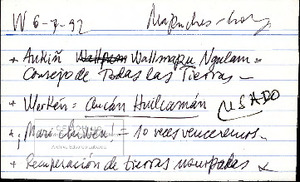 W 6-7-92 Mapuches-
+ Aukiñ Wallmapu Ngulam =
Consejo de Todas las Tierras -
+ Werkén = Aucán Huilcamán
USADO
+ ¡Mari chiweu! = 10 veces venceremos.
+ Recuperación de tierras usurpadas x